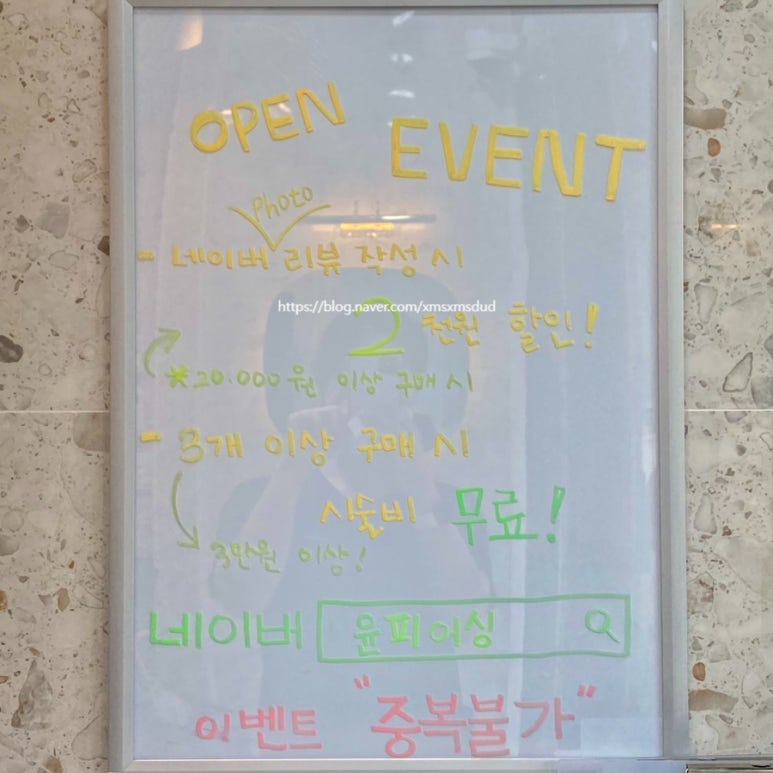 OPEN EVENT
Photo
- 네이버 리뷰 작성 시
https://blog.naver.com/xmsxmsdud
2천원 할인!
※20.000원 이상 구매 시
- 3개 이상 구매 시
시술비 무료!
3만원 이상!
네이버 윤피어싱
이벤트 "중복불가"